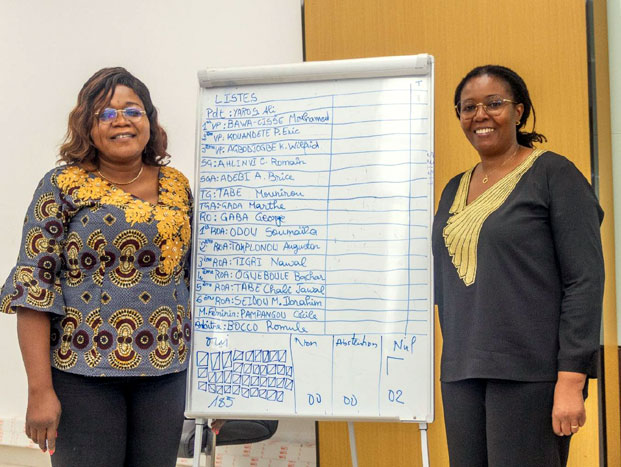 LISTES
Pdt : YAROS Ali
1er VP: BAWA-CISSE Mohamed
2ème VP: KOUANDETE P. Eric
3ème VP: AGBODJOGBE K. Wilfrid
SG: AHLINVI C. Romain
SGA: ADEBI A. Brice
TG: TABE Mounirou
TGA: GADA Marthe
RO: GABA George
1er ROA: ODOU Soumaïla
2ème ROA: TOKPLONOU Augustin
3ème ROA: TIGRI Nawal
4ème ROA: OGUEBOULE Bachar
5ème ROA: TABE Chabi Jawal
6ème ROA: SEIDOU M. Ibrahim
M. Féminin: PAMPANGOU Cécile
Arbitre: BOCCO Romule
OUI Non Abstention Nul
185 00 00 02